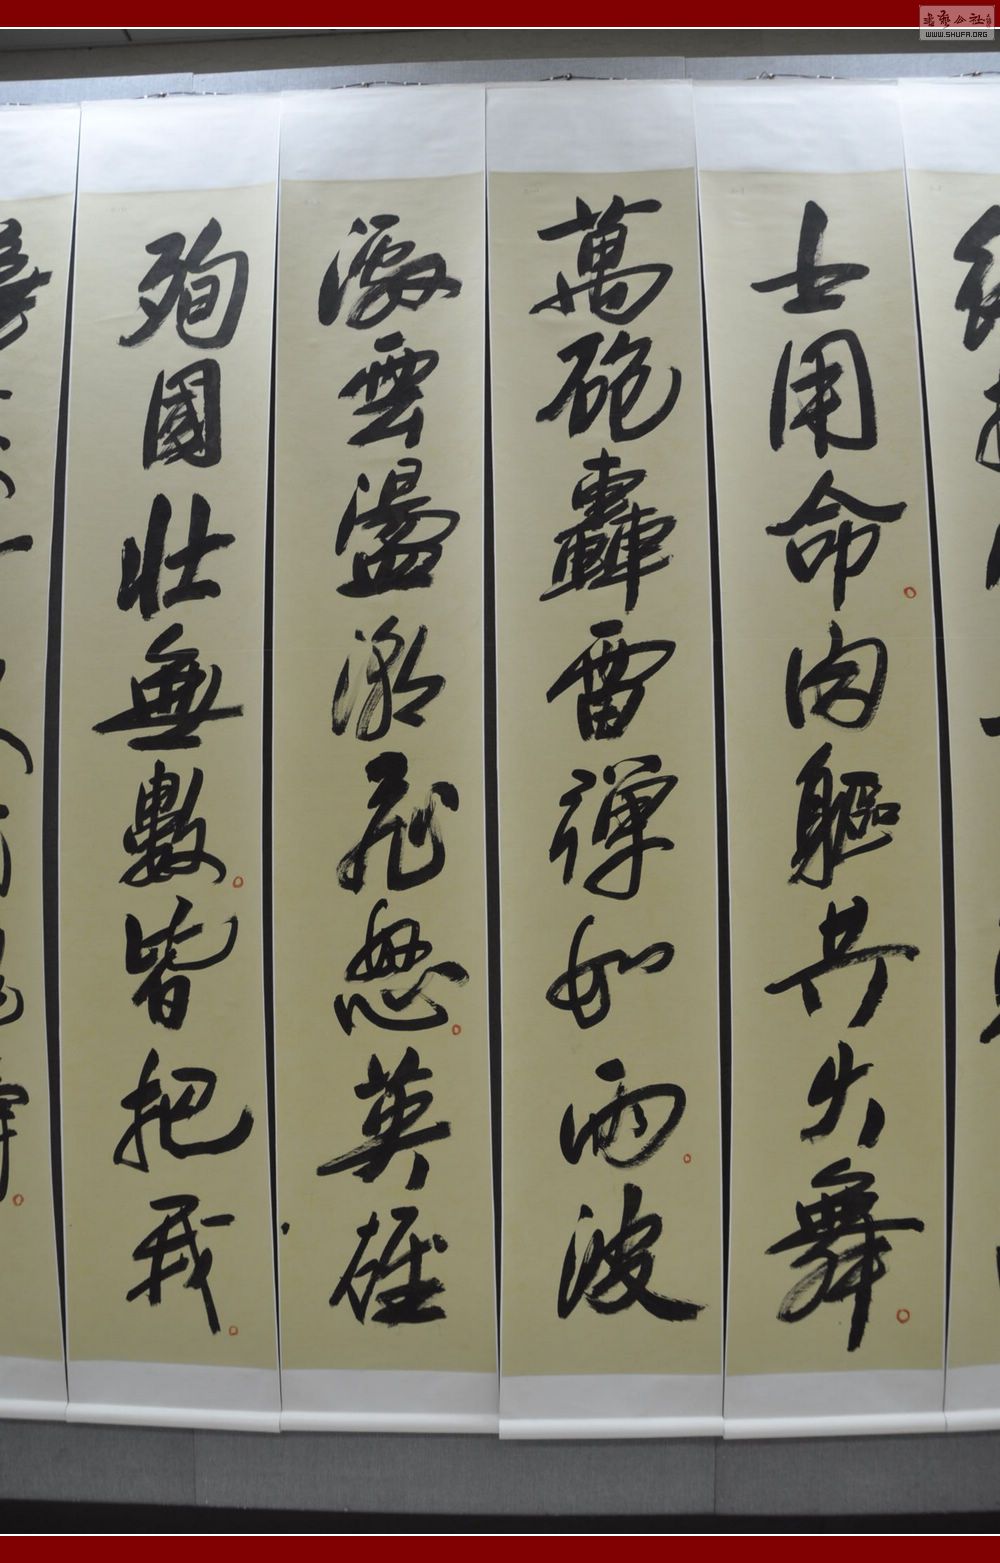 書藝公社
WWW.SHUFA.ORG
士用命肉軀共火舞
萬砲轟雷彈如雨波
激雲盪潮飛怒英雄
殉國壯無數皆把我